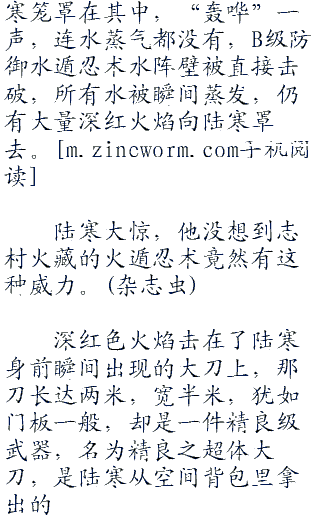 寒笼罩在其中，“轰哗”一
声，连水蒸气都没有，B级防
御水遁忍术水阵壁被直接击
破，所有水被瞬间蒸发，仍
有大量深红火焰向陆寒罩
去。[m.zincworm.com手机阅
读]
陆寒大惊，他没想到志
村火藏的火遁忍术竟然有这
种威力。(杂志虫)
深红色火焰击在了陆寒
身前瞬间出现的大刀上，那
刀长达两米，宽半米，犹如
门板一般，却是一件精良级
武器，名为精良之超体大
刀，是陆寒从空间背包里拿
出的